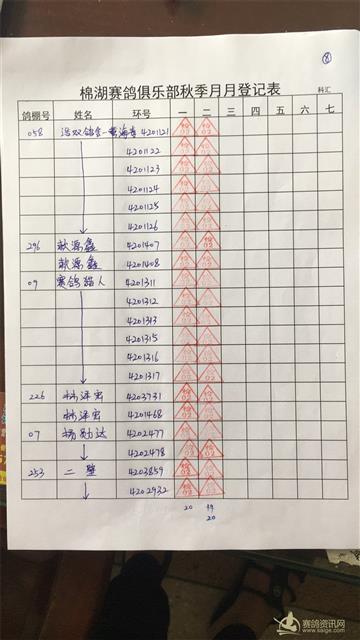 ⑧
棉湖赛鸽俱乐部秋季月月登记表
科汇
鸽棚号 姓名 环号 一 二 三 四 五 六 七
058 4201121
4201122
4201123
4201124
4201125
4201126
296 4201407
4201408
09 赛鸽猎人 4201311
4201312
4201313
4201315
4201316
4201317
226 4203731
4201468
07 杨勋达 4202477
4202478
253 二 4203859
4202932
20 19
20
赛鸽资讯网
www.saige.com